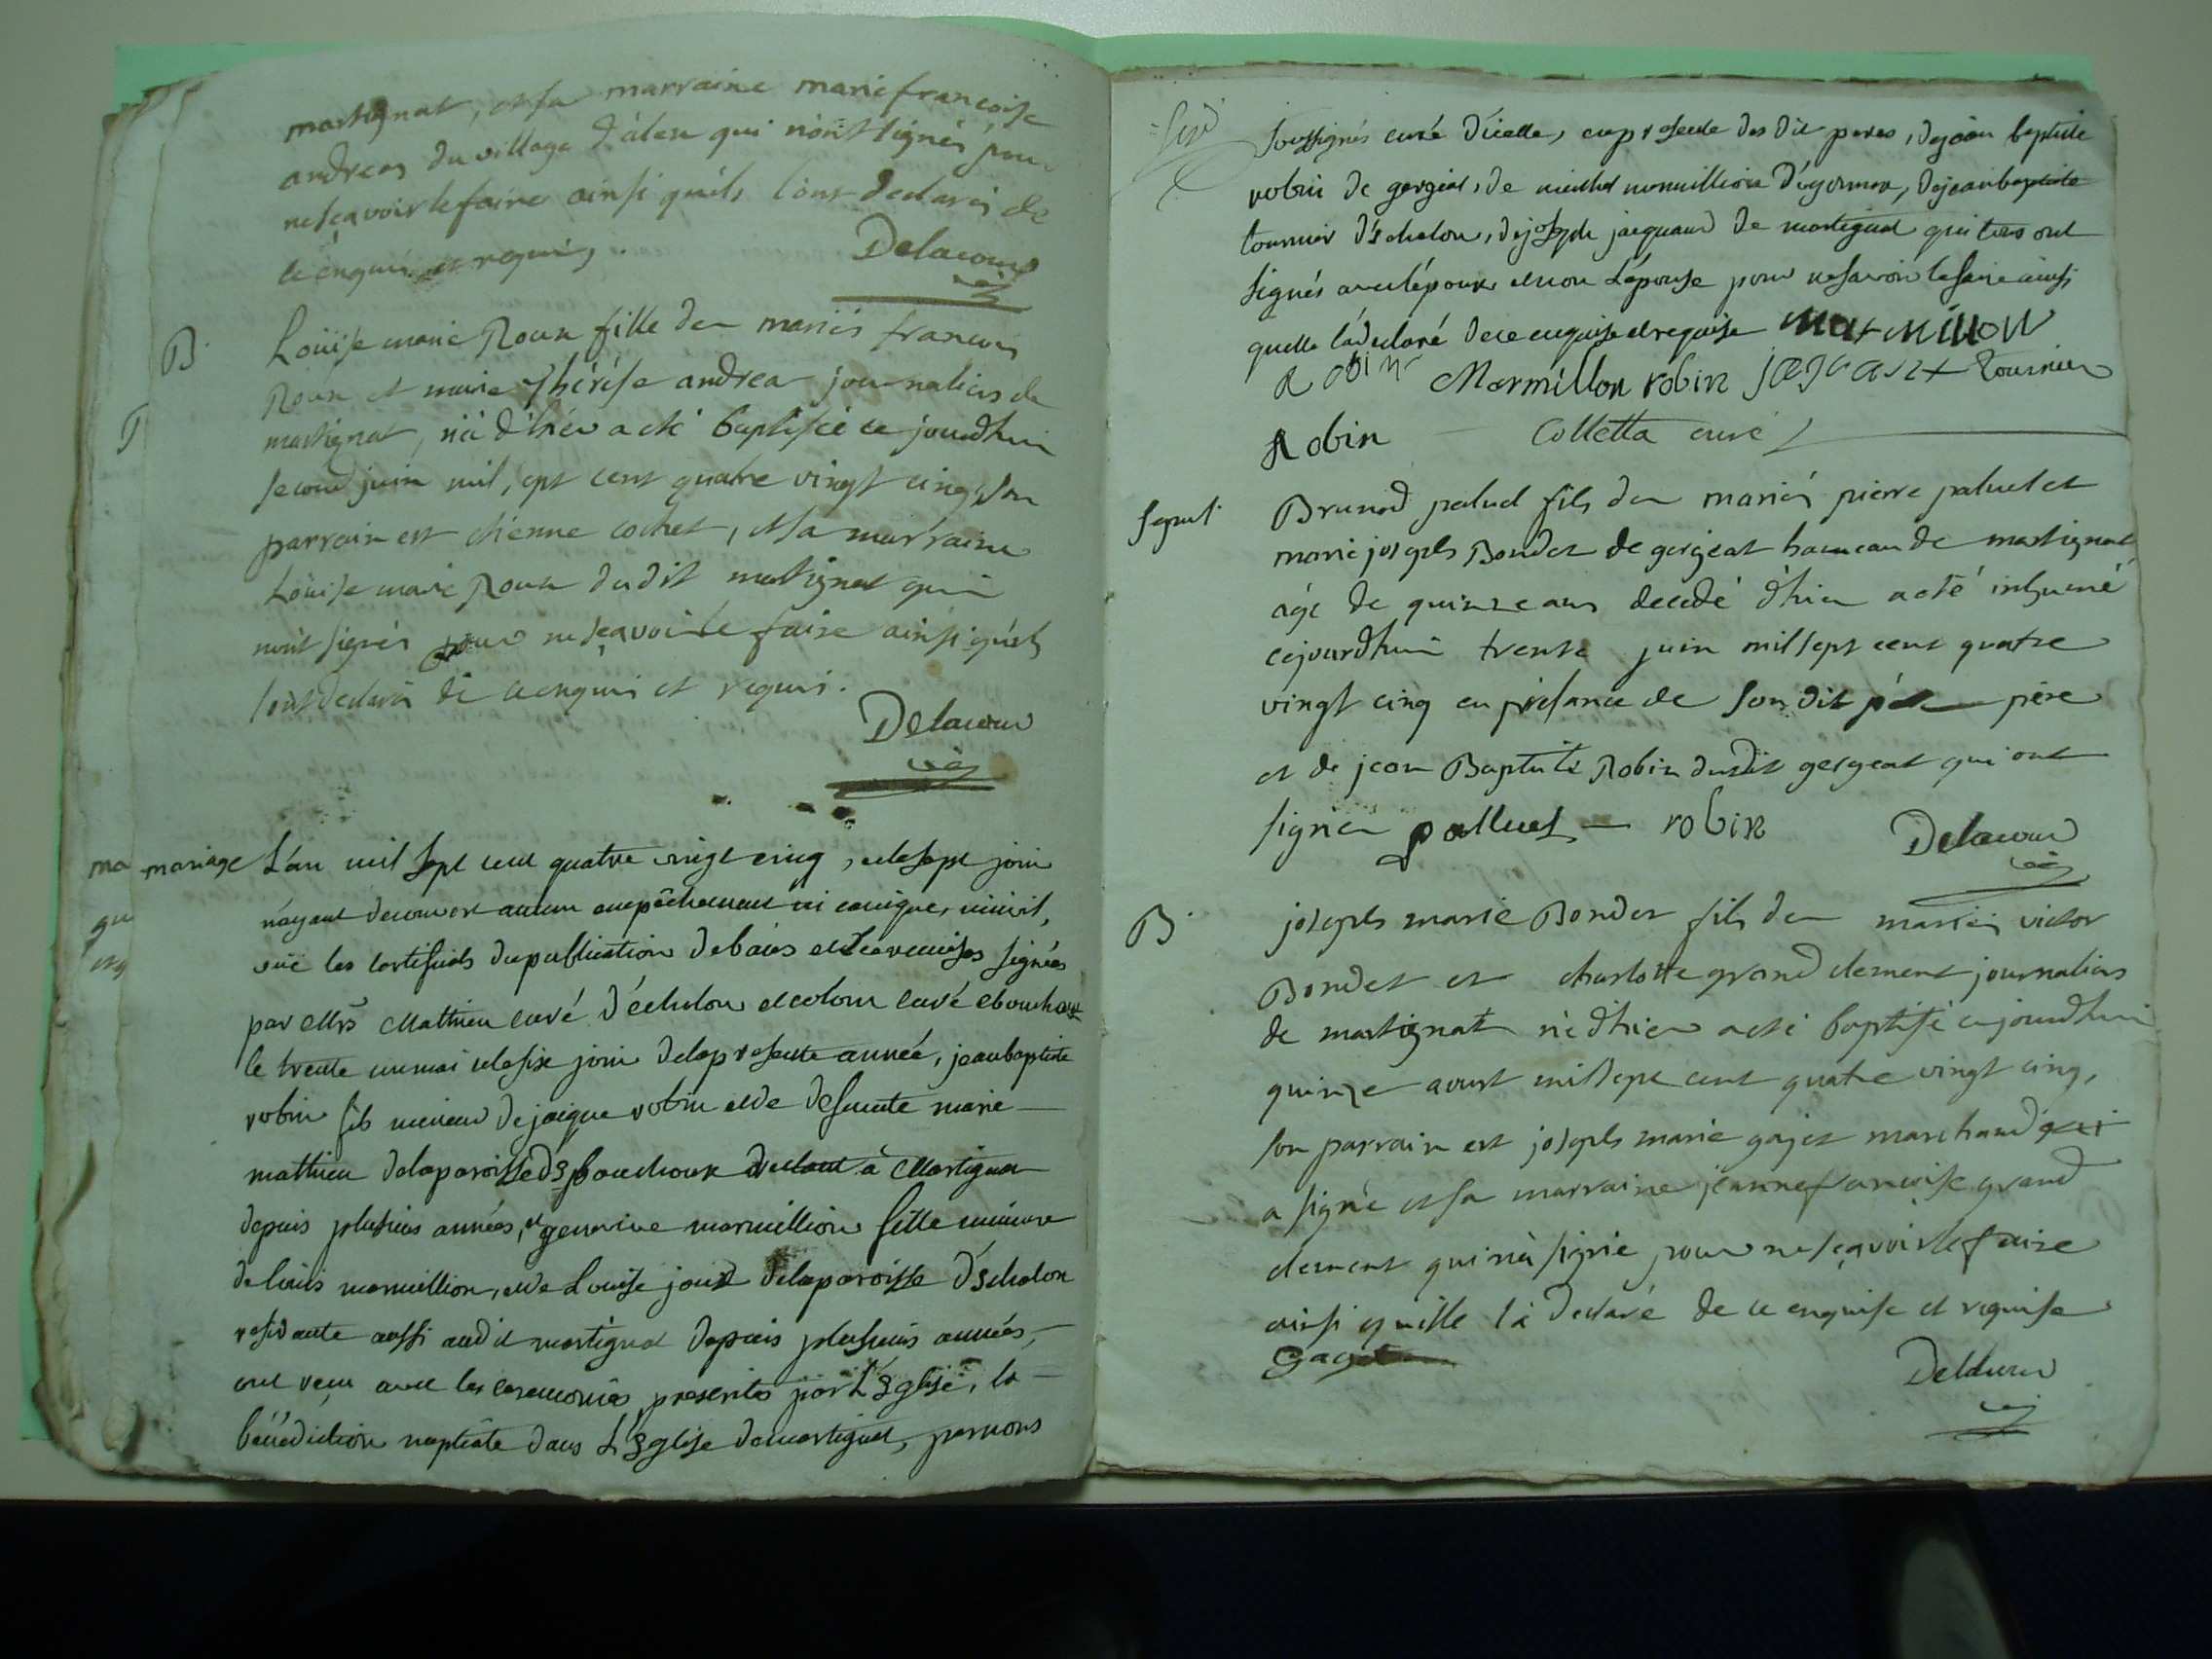 martignat, et sa marraine marie francoise
andrea du village d'alex qui n'ont signés pour
ne sçavoir le faire ainsi quils l'ont declarés de
ce enquis et requis.
Delacour
vic
B.
Loüise marie Roux fille des mariés francois
Roux et marie thérése andrea journaliers de
martignat, née d'hier a été baptisée ce jourdhui
second juin mil sept cent quatre vingt cinq, son
parrain est etienne cochet, et sa marraine
Loüise marie Roux dudit martignat qui
n'ont signés pour ne sçavoir le faire ainsi quils
l'ont declarés de ce enquis et requis.
Delacour
vic
mariage L'an mil sept cent quatre vingt cinq, et le sept juin
n'ayant decouvert aucun empêchement ni canique, ni civil,
vüe les certificats de publication de bans et de remises signées
par Mrs Mathieu curé d'échalon et colom curé
le trente un mai et le six juin de la presente année, jean baptiste
robin fils mineur de jaique robin et de defunte marie
mathieu de la paroisse des bouchoux à Martignat
depuis plusieurs années, et genevieve marmillion fille mineure
de louis marmillion, et de Louise joüd de la paroisse d'échalon
residante aussi audit martignat depuis plusieurs années,
ont reçu avec les ceremonies prescrites par L'Eglise, la
bénédiction nuptiale dans L'Eglise de martignat, par nous
soussignés curé d'icelle, en presence des dit peres, de jean baptiste
robin de gergeat, de michel marmillion d'eyonnax, de jean baptiste
tournier d'échalon, de joseph jacquand de martignat qui tous ont
signés avec l'époux et non L'épouse pour ne savoir le faire ainsi
quelle l'a declaré de ce enquise et requise marmillon
Robin Marmillon robin jacquand tournier
Robin Colletta curé
sepult.
Brunod palud fils des mariés pierre paluel et
marie joseph Bondet de gergeat hameau de martignat
agé de quinze ans decedé d'hier a été inhumé
cejourdhui trente juin mil sept cent quatre
vingt cinq en présance de son dit père
et de jean Baptiste Robin dudit gergeat qui ont
signés palluel robin
Delacour
vic
B.
joseph marie Bondet fils des mariés victor
Bondet et charlotte grand clement journaliers
de martignat né d'hier a été baptisé cejourdhui
quinze aoust mil sept cent quatre vingt cinq,
son parrain est joseph marie gajet marchand qui
a signé et sa marraine jeanne francoise grand
clement qui n'a signé pour ne sçavoir le faire
ainsi quelle l'a declaré de ce enquise et requise
Gaget
Delacour
vic